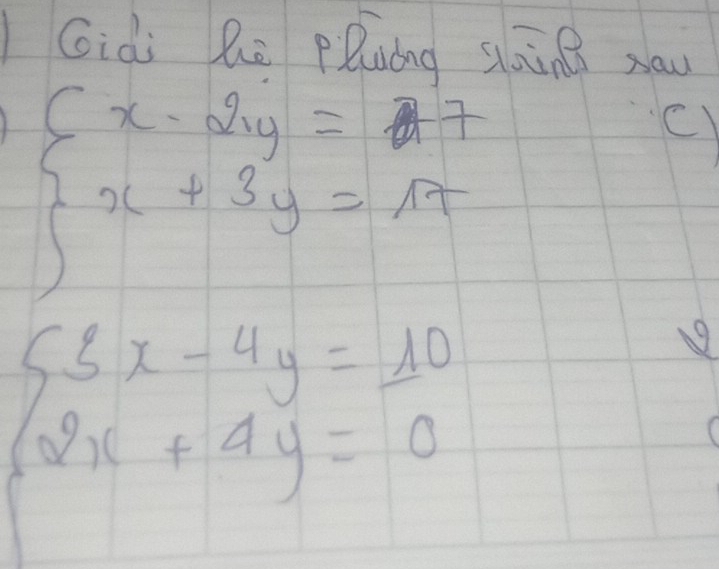 ) Giải hệ phương trình sau
) { x - 2y = 7 C)
x + 3y = 17
{ 3x - 4y = 10
2x + 4y = 0